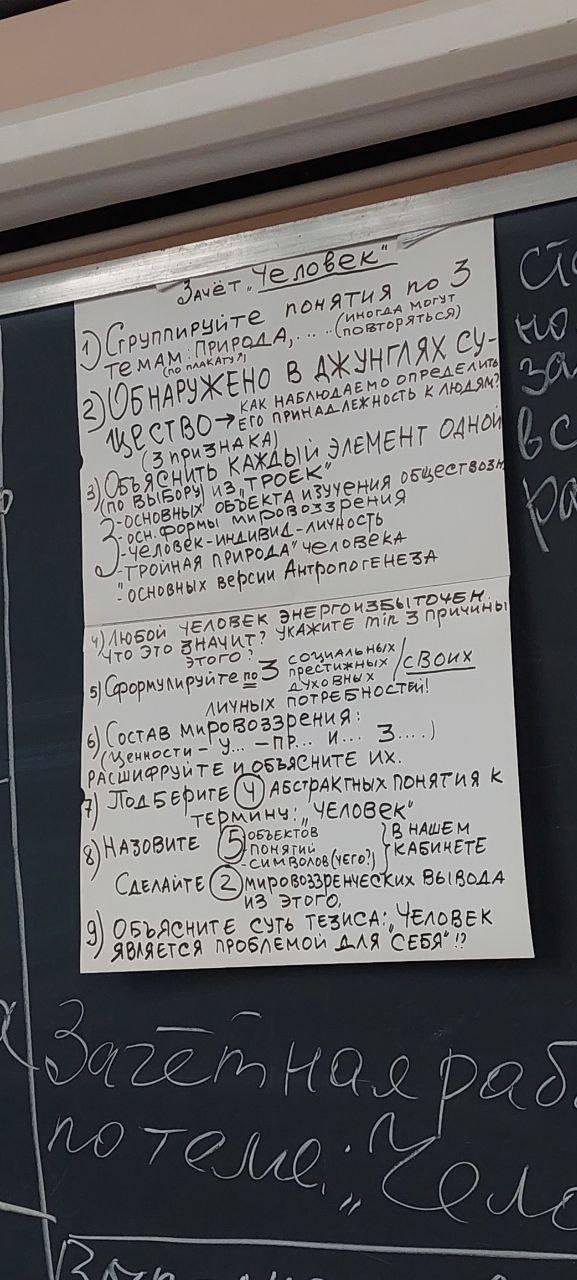 Зачёт „Человек"
1) Сгруппируйте понятия по 3
темам: природа, .... (иногда могут
(по плакату?) повторяться)
2) Обнаружено в джунглях су-
щество → как наблюдаемо определить
его принадлежность к людям?
(3 признака)
3) Объяснить каждый элемент одной
(по выбору) из „троек"
3 - основных объекта изучения обществозн.
- осн. формы мировоззрения
- человек-индивид-личность
- „тройная природа" человека
" - основных версии Антропогенеза
4) Любой человек энергоизбыточен.
Что это значит? Укажите min 3 причины
этого?
5) Сформулируйте по 3 социальных
престижных / своих
духовных
личных потребностей!
6) Состав мировоззрения:
(ценности – у... – пр... и... з....)
Расшифруйте и объясните их.
7) Подберите 4 абстрактных понятия к
термину: „человек"
8) Назовите 5 - объектов } в нашем
- понятий кабинете
- символов (чего?)
Сделайте 2 мировоззренческих вывода
из этого.
9) Объясните суть тезиса: „Человек
является проблемой для себя"!?
ст
но
за
вс
ра
Зачётная раб
по теме: „Чело